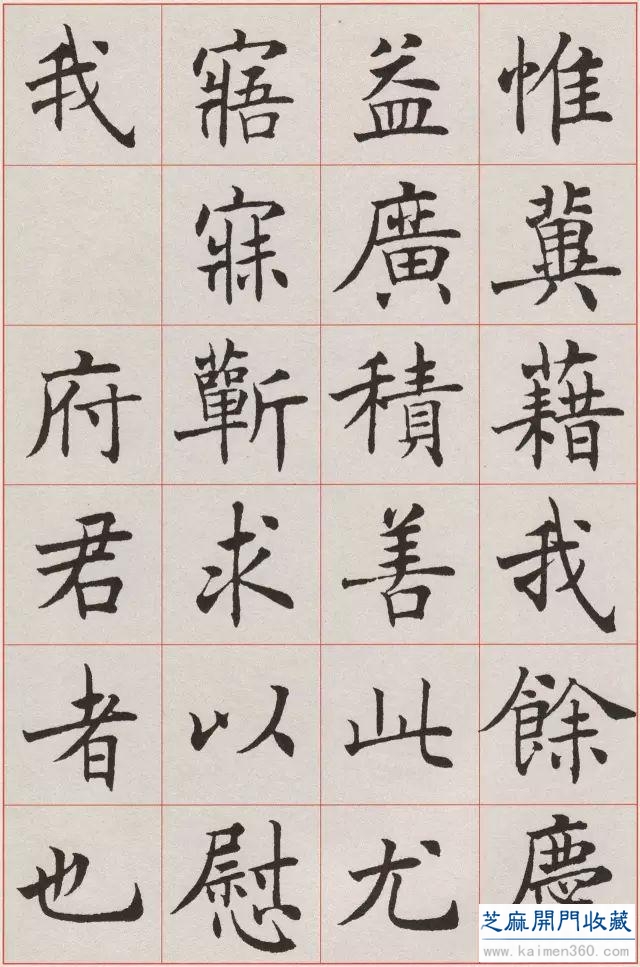 惟冀藉我餘慶
益廣積善此尤
寤寐蘄求以慰
我 府君者也
芝麻開門收藏
www.kaimen360.com